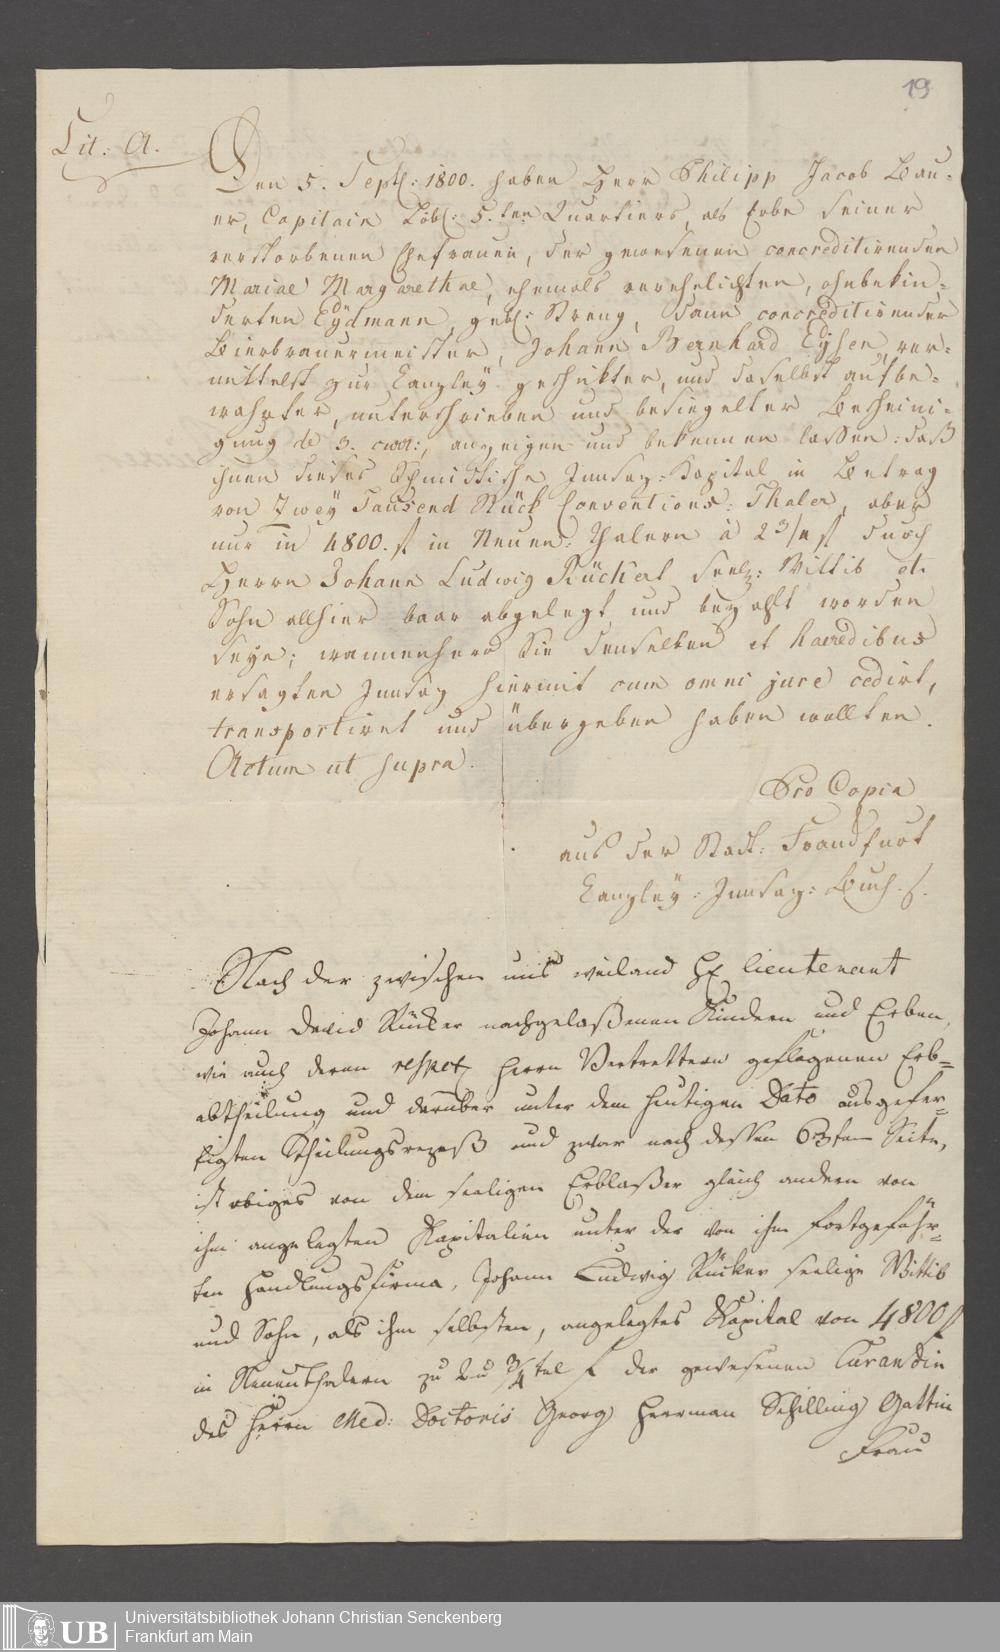 19
Lit: A.
Den 5. Sept: 1800. haben Herr Philipp Jacob Bau-
er, Capitain Löbl: 5.ten Quartiers, als Erbe seiner
verstorbenen Ehefrauen, der gewesenen concreditirenden
Mariae Margarethae, ehemals verehelichten, ohnbekin-
derten Eydmann, geb: Streng, dann concreditirender
Bierbrauermeister, Johann Bernhard Eysen, ver-
mittelst zur Kanzley geschikter, und daselbst aufbe-
wahrter, unterschrieben und besiegelter Bescheini-
gung de 3. curr:, anzeigen und bekennen lassen: daß
ihnen dieses Insaz-Kapital in Betrag
von Zwey Tausend Stück Conventions-Thaler, aber
nur in 4800. fl in Neuen-Thalern à 2 3/4 fl durch
Herrn Johann Ludwig Rückert seel: Wittib et
Sohn allhier baar abgelegt und bezahlt worden
seye; wannenhero Sie denselben et haeredibus
ersagten Innsaz hiermit cum omni jure cedirt,
transportiret und übergeben haben wollten.
Actum ut supra.
Pro Copia
aus der Stadt-Frankfurt
Kanzley-Innsaz-Buch.
Nach der zwischen uns weiland H lieutenant
Johann David Rücker nachgelaßenen Kindern und Erben,
wie auch deren respect. Herrn Vertrettern gepflogenen Erb-
abtheilung und darüber unter dem heutigen Dato ausgefer-
tigten Theilungsrezeß und zwar nach dessen 63ten Seite,
ist obiges von dem seeligen Erblaßer gleich andern von
ihm angelegten Kapitalien unter der von ihm fortgeführ-
ten Handlungsfirma, Johann Ludwig Rücker seelige Wittib
und Sohn, als ihm selbsten, angelegtes Kapital von 4800 f
in Neuenthalern zu 2 u 3/4tel f der gewesenen Curandin
des Herrn Med: Doctoris Georg Herrman Schilling Gattin
Frau
UB
Universitätsbibliothek Johann Christian Senckenberg
Frankfurt am Main